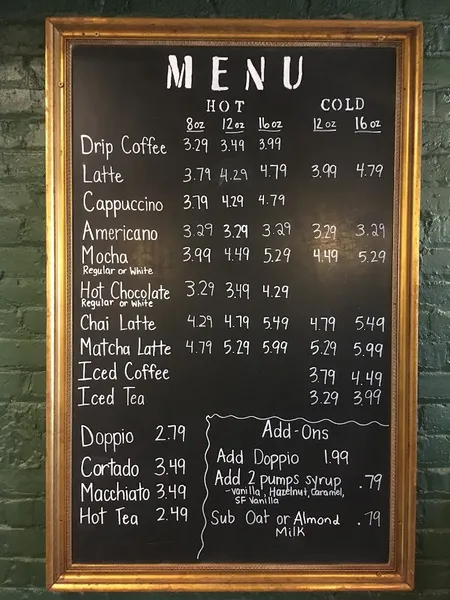 MENU
HOT COLD
8oz 12oz 16oz 12oz 16oz
Drip Coffee 3.29 3.49 3.99
Latte 3.79 4.29 4.79 3.99 4.79
Cappuccino 3.79 4.29 4.79
Americano 3.29 3.29 3.29 3.29 3.29
Mocha 3.99 4.49 5.29 4.49 5.29
Regular or White
Hot Chocolate 3.29 3.49 4.29
Regular or White
Chai Latte 4.29 4.79 5.49 4.79 5.49
Matcha Latte 4.79 5.29 5.99 5.29 5.99
Iced Coffee 3.79 4.49
Iced Tea 3.29 3.99
Doppio 2.79
Cortado 3.49
Macchiato 3.49
Hot Tea 2.49
Add-Ons
Add Doppio 1.99
Add 2 pumps syrup .79
-vanilla, Hazelnut, Caramel,
SF Vanilla
Sub Oat or Almond .79
Milk